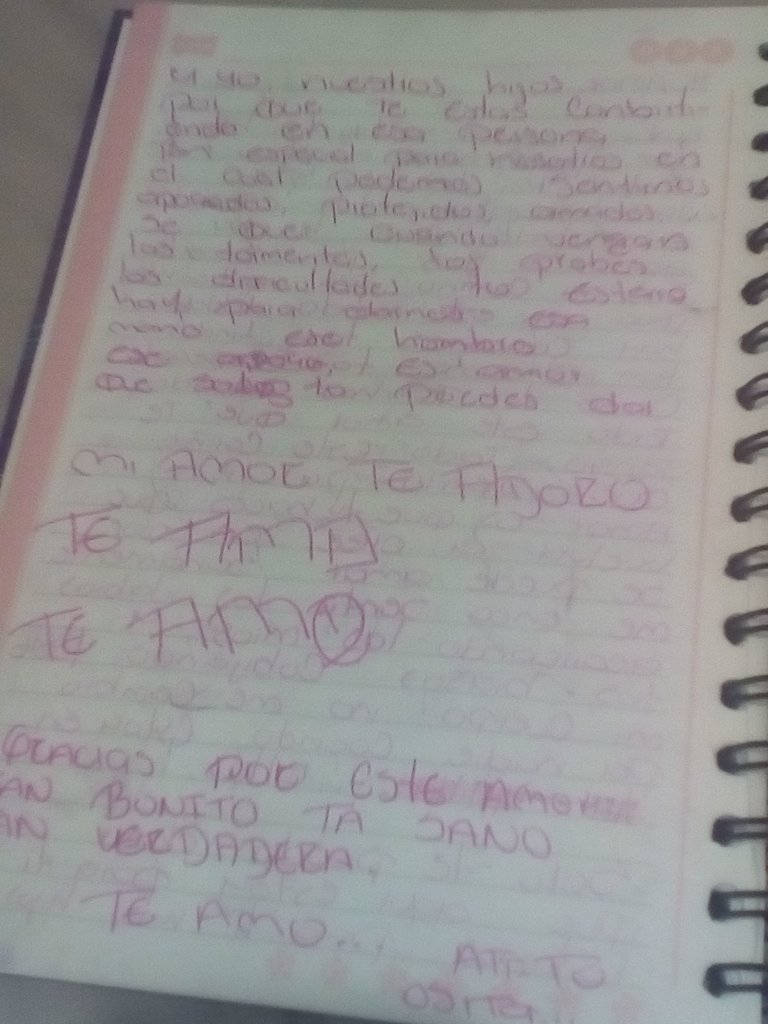 y yo, nuestros hijos
por que te estas convirti
endo en esa persona
tan especial para nosotros en
el cual podemos sentirnos
apoyados, protejidos, amados
se que cuando vengan
las tormentas, las probes
las dificultades tu estero
hay para darnos esa
mano ese hombro
ese apoyo, es amor
que sabes tu puedes dar
Mi AMOR TE ADORO
TE AMO
TE AMO
GRACIAS POR ESTE AMOR
AN BONITO TA SANO
AN VERDADERA.
TE AMO...
ATT: TU
OSITA..